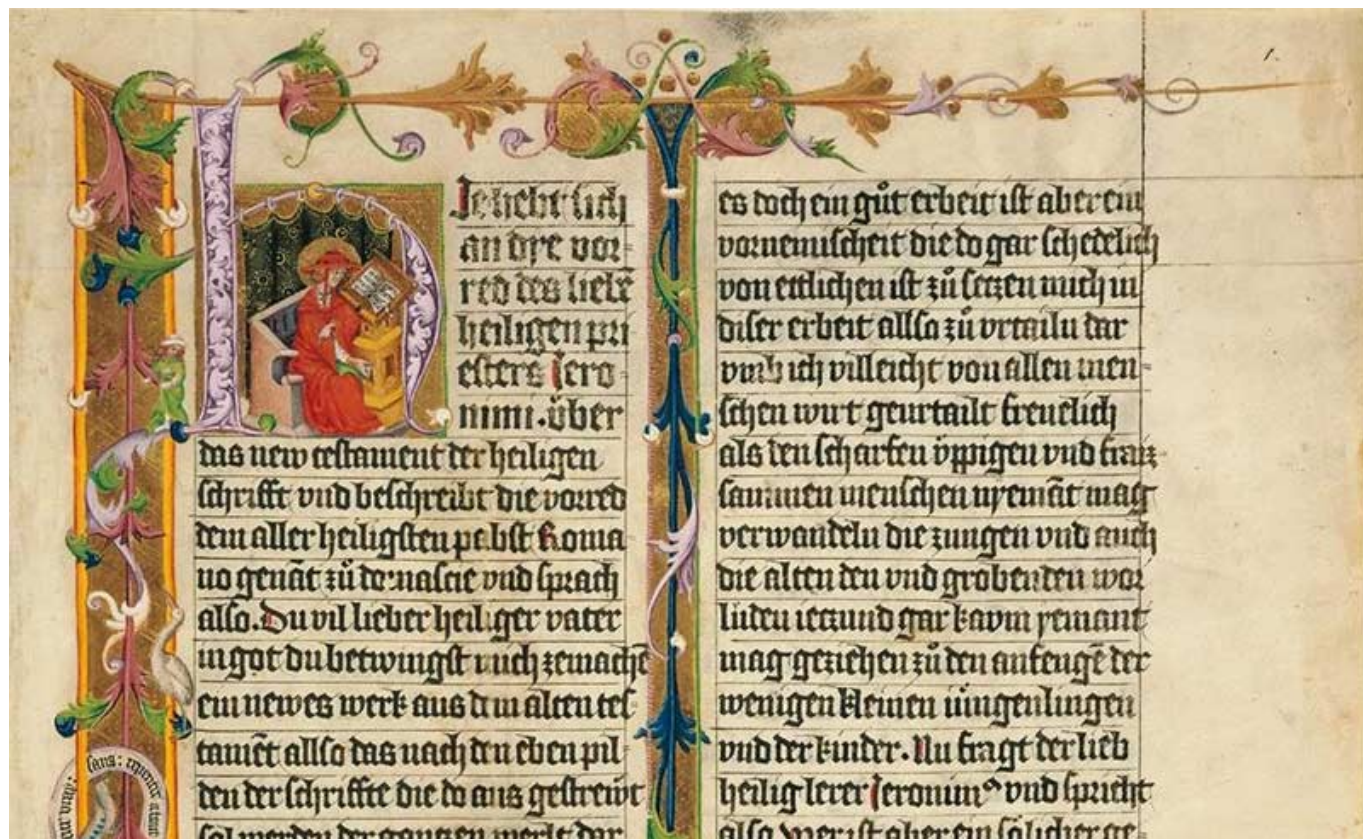 HIe hebt sich
an dye vor=
red des liebē
heiligen pri
esters iero=
nimi. über
das new testament der heiligen
schrifft vnd beschreibt die vorred
dem aller heiligsten pabst Roma
no genāt zů
vnd sprach
also. Du vil lieber heiliger vater
in got du betwingst mich zemachē
ein newes werk aus dem alten tes=
tamēt allso das nach den eben pil=
den der schriffte die do aus gestrewt
es doch ein gůt erbeit ist aber ein
vornemischeit die do gar schedelich
von ettlichen ist zů setzen mich in
diser erbeit allso zů vrtailn dar
vmb ich villeicht von allen men=
schen wirt geurtailt freuelich
als den scharfen üppigen vnd
sammen menschen nyemāt mag
verwandeln die zungen vnd auch
die alten den vnd groben den wor
luden ietzund gar kavm yemant
mag geziehen zů den anfengē der
wenigen kleinen iüngenlingen
vnd der kinder. Nu fragt der lieb
heilig lerer ieronimꝰ vnd spricht
also wer ist aber ein sölicher ge=